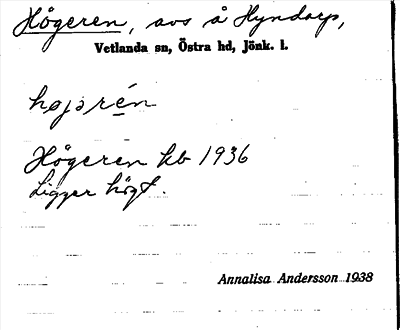 Högeren, avs å Hyndarp,
Vetlanda sn, Östra hd, Jönk. l.
højərén
Högeren kb 1936
Ligger högt.
Annalisa Andersson 1938